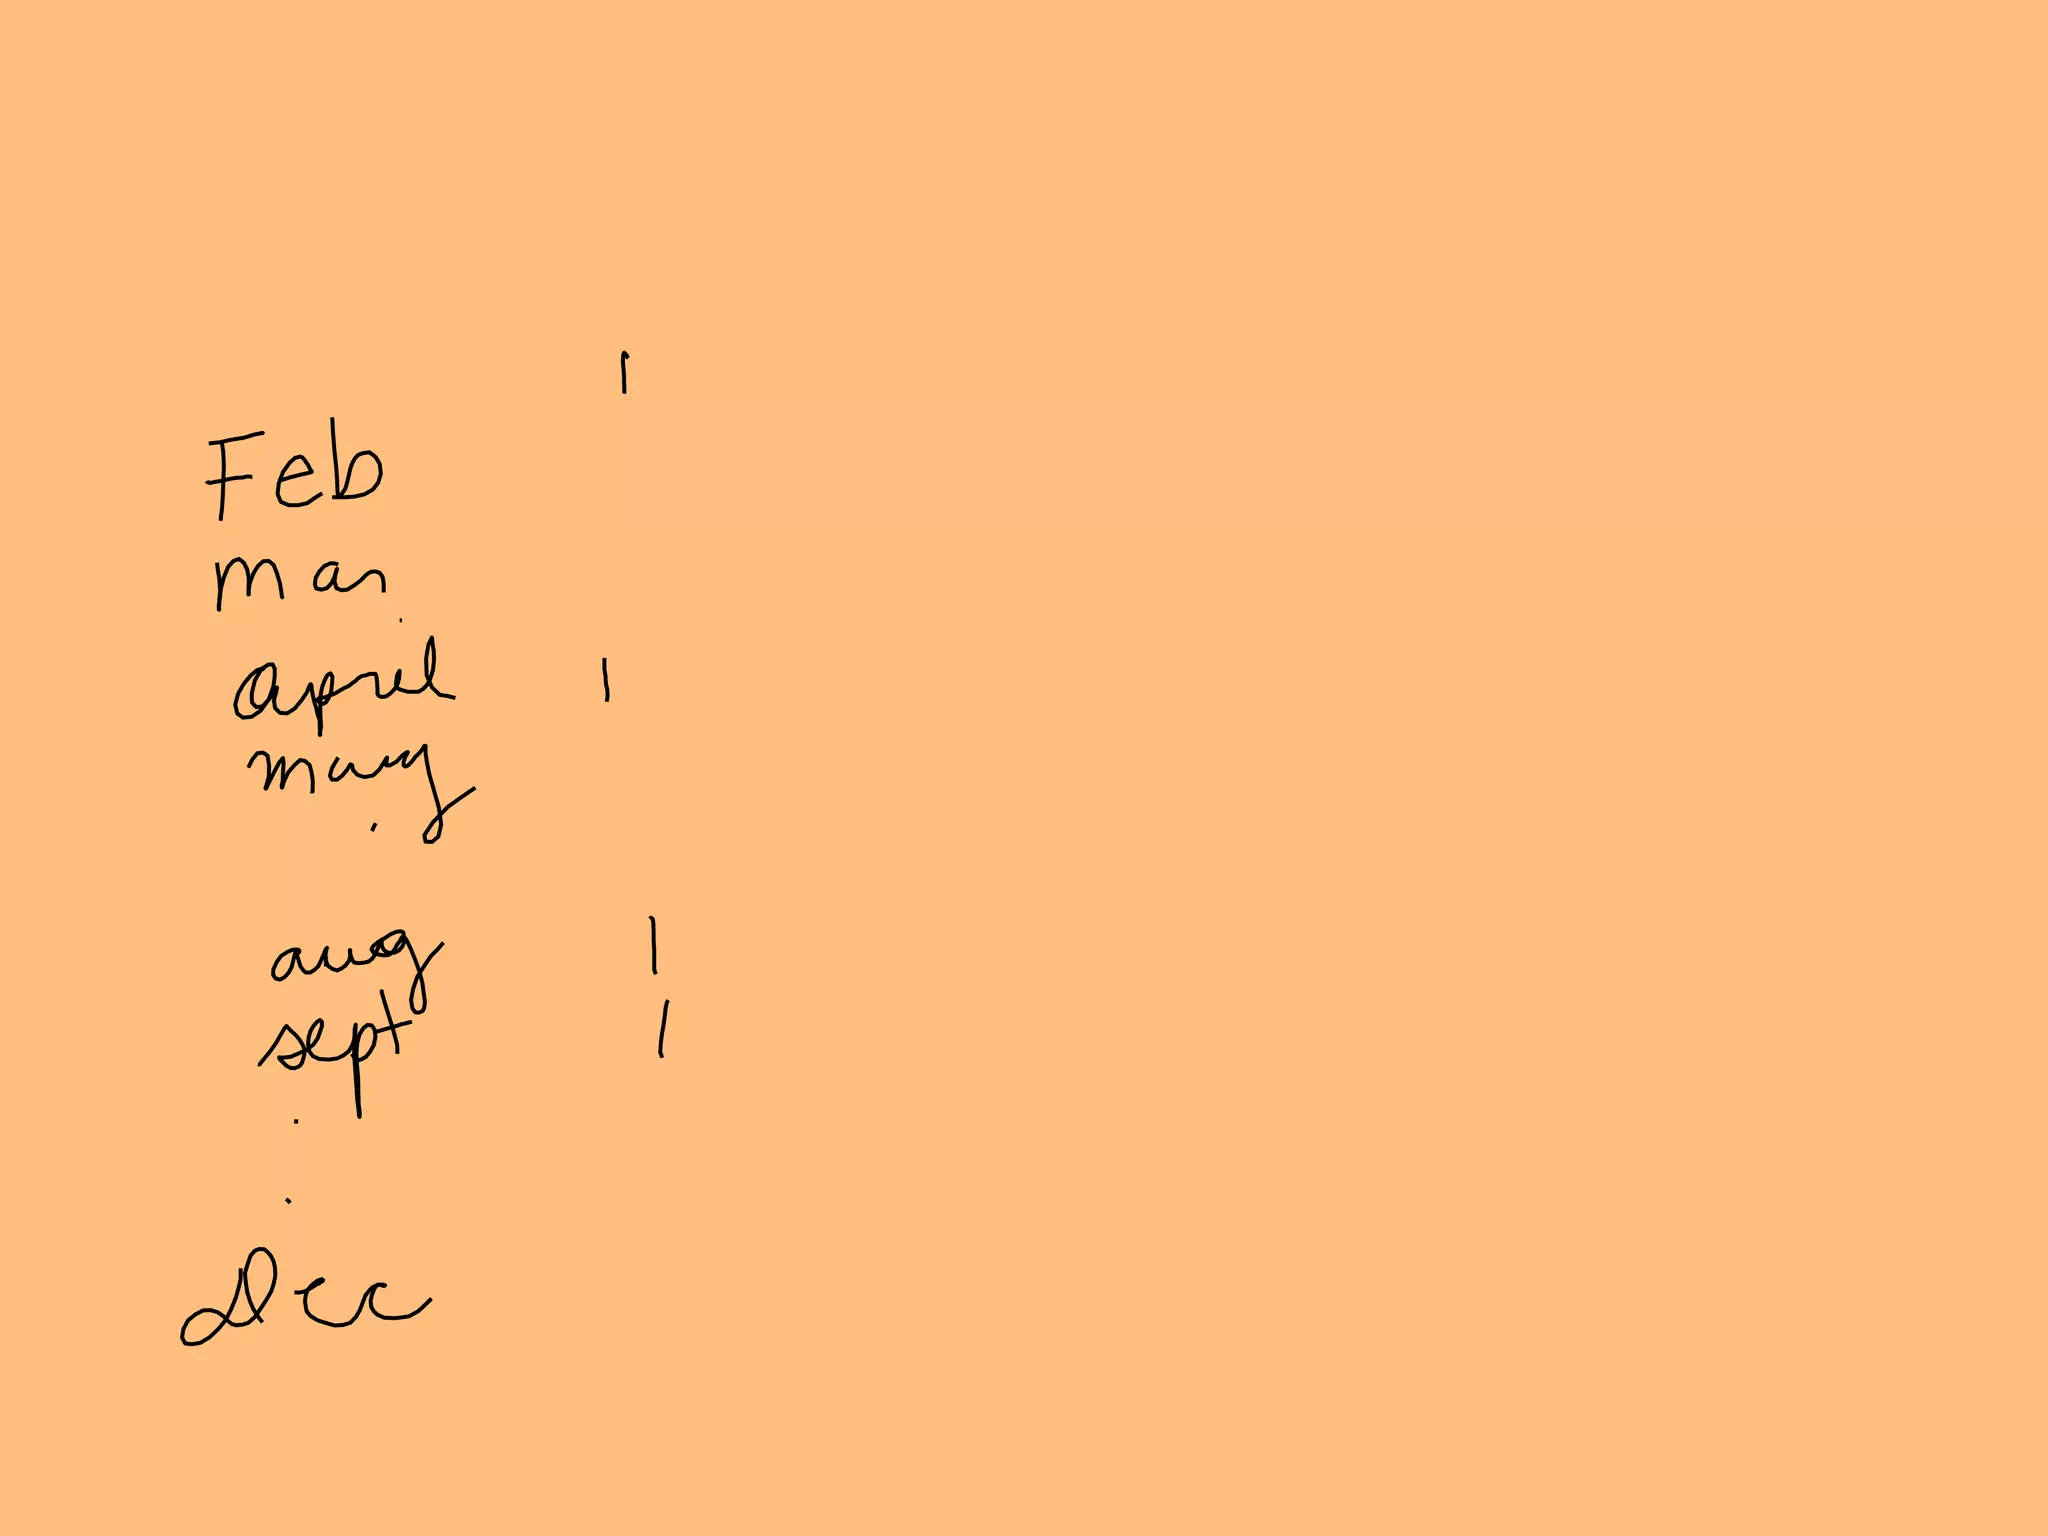 1
Feb
Mar
April 1
May
.
Aug 1
Sept 1
.
.
Dec